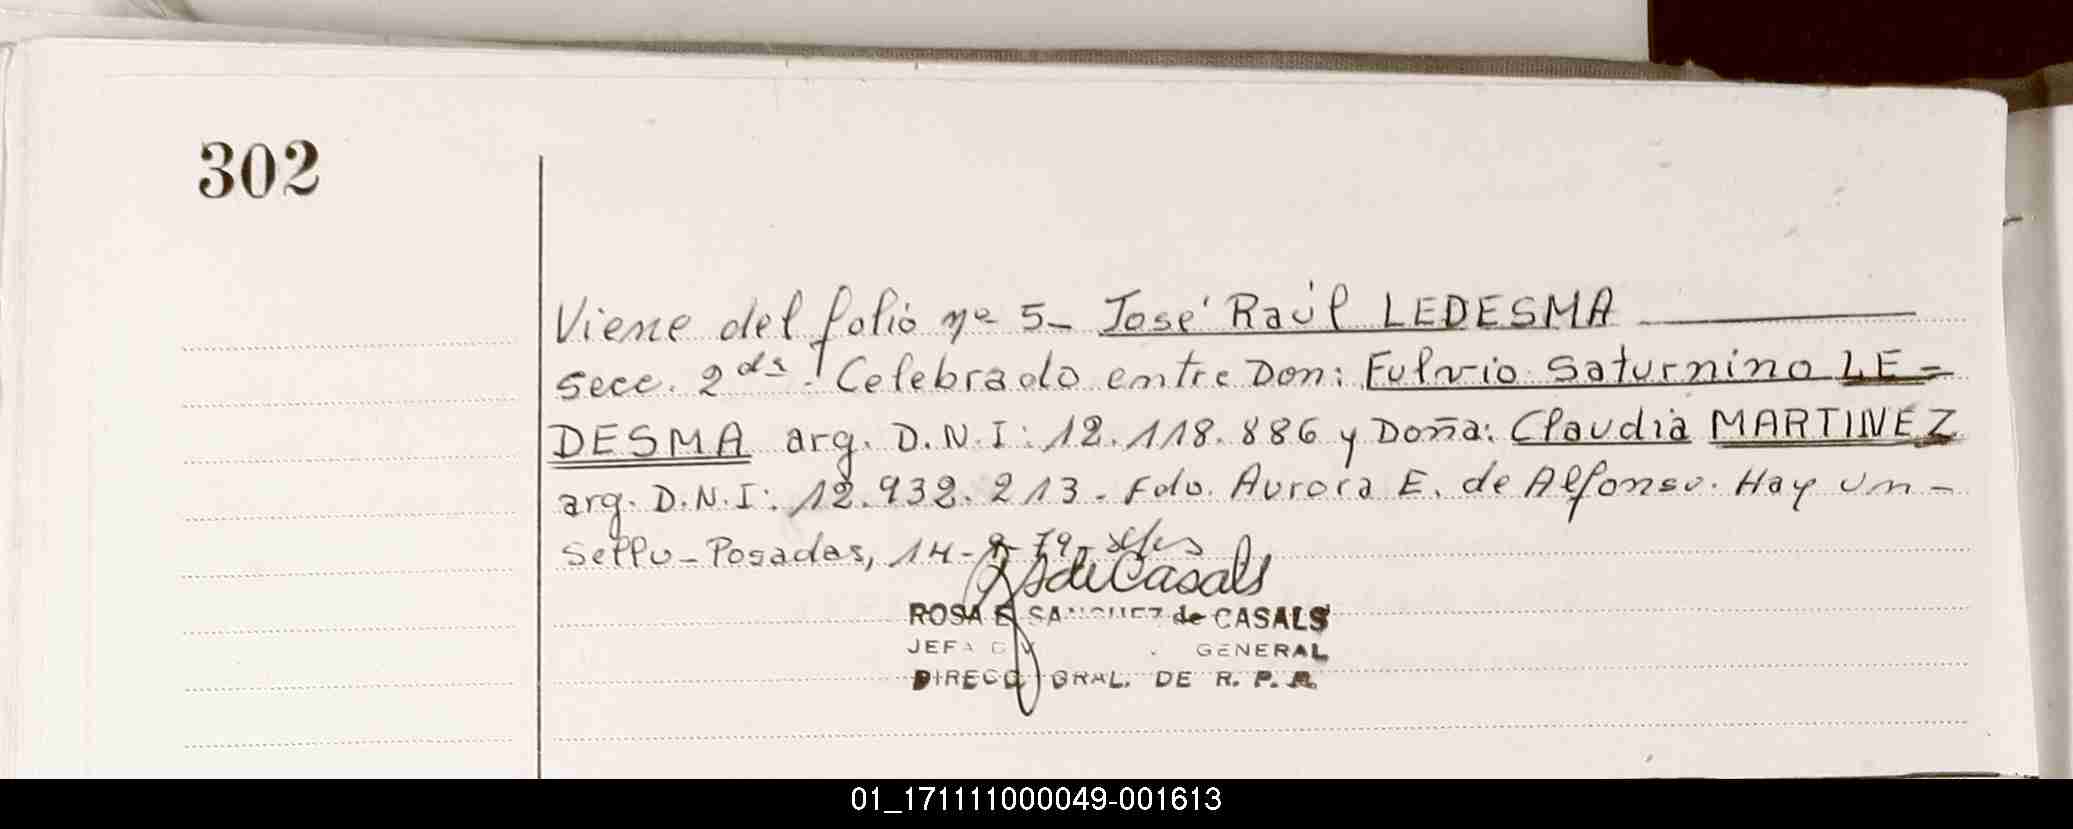 302
Viene del folio nº 5- José Raúl LEDESMA
secc. 2da. Celebrado entre Don: Fulvio Saturnino LE-
DESMA arg. D.N.I: 12.118.886 y Doña: Claudia MARTINEZ
arg. D.N.I: 12.932.213. Fdo. Aurora E. de Alfonso. Hay un-
sello-Posadas, 14-8-79-
RSdeCasals
ROSA E SANCHEZ de CASALS
JEFA GENERAL
DIRECC GRAL. DE R. P.
01_171111000049-001613